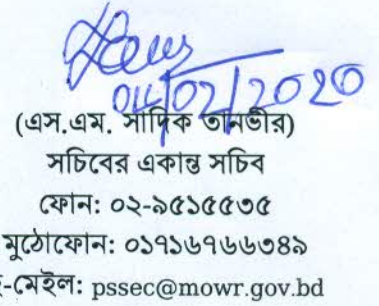 04/02/2020
(এস.এম. সাদিক তানভীর)
সচিবের একান্ত সচিব
ফোন: ০২-৯৫১৫৫৩৫
মুঠোফোন: ০১৭১৬৭৬৬৩৪৯
-মেইল: pssec@mowr.gov.bd